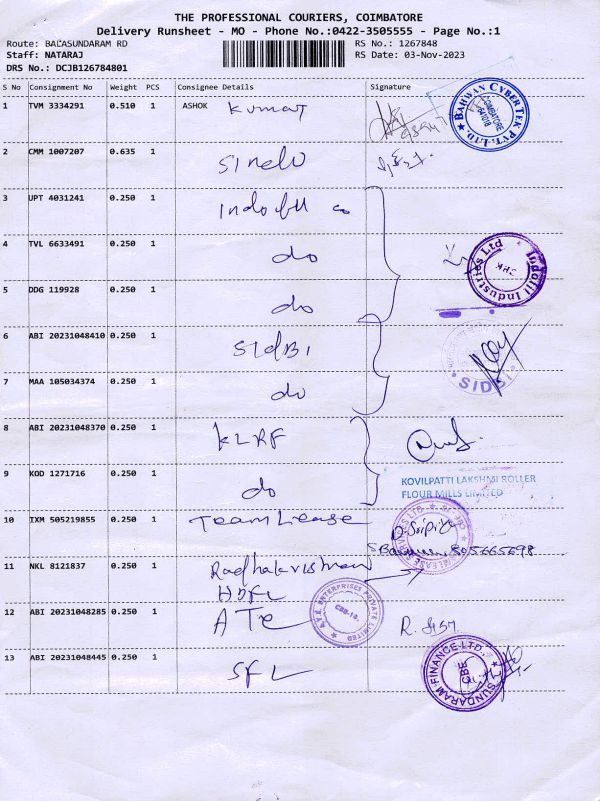 THE PROFESSIONAL COURIERS, COIMBATORE
Delivery Runsheet - MO - Phone No.:0422-3505555 - Page No.:1
Route: BALASUNDARAM RD
RS No.: 1267848
Staff: NATARAJ
RS Date: 03-Nov-2023
DRS No.: DCJB126784801
S No Consignment No Weight PCS Consignee Details Signature
1 TVM 3334291 0.510 1 ASHOK Kumar
BAHWAN CYBERTEK PVT. LTD COIMBATORE 641018
2 CMM 1007207 0.635 1
3 UPT 4031241 0.250 1 Indofil co
4 TVL 6633491 0.250 1 do
Indofil Industries Ltd
5 DDG 119928 0.250 1 do
6 ABI 20231048410 0.250 1 SIDBI
SIDBI
7 MAA 105034374 0.250 1 do
8 ABI 20231048370 0.250 1 KLRF
9 KOD 1271716 0.250 1 do
KOVILPATTI LAKSHMI ROLLER
FLOUR MILLS LIMITED
10 IXM 505219855 0.250 1 Teamlease
11 NKL 8121837 0.250 1 Radhakrishnan
HDFC
12 ABI 20231048285 0.250 1
ENTERPRISES PRIVATE LIMITED
13 ABI 20231048445 0.250 1 SFL
SUNDARAM FINANCE LTD. CBE